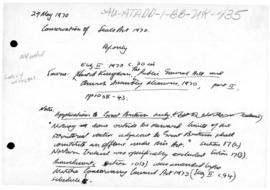 29 May 1970
AU-ATADD-1-BB-UK-435
Conservation of Seals Act 1970.
Eliz II 1970 c. 30 in
United Kingdom, Public General Acts and
Church Assembly Measures 1970, part II,
pp 1038-43.
Note: Application to Great Britain only
"Nothing done outside the seaward limits of the
territorial waters adjacent to Great Britain shall
constitute an offence under this Act." Section 17(2)
Northern Ireland was specifically excluded section 17(3)
Amendment. Section 10(3) was amended
Nature Conservancy Council Act 1973 (Eliz II c 54)
schedule